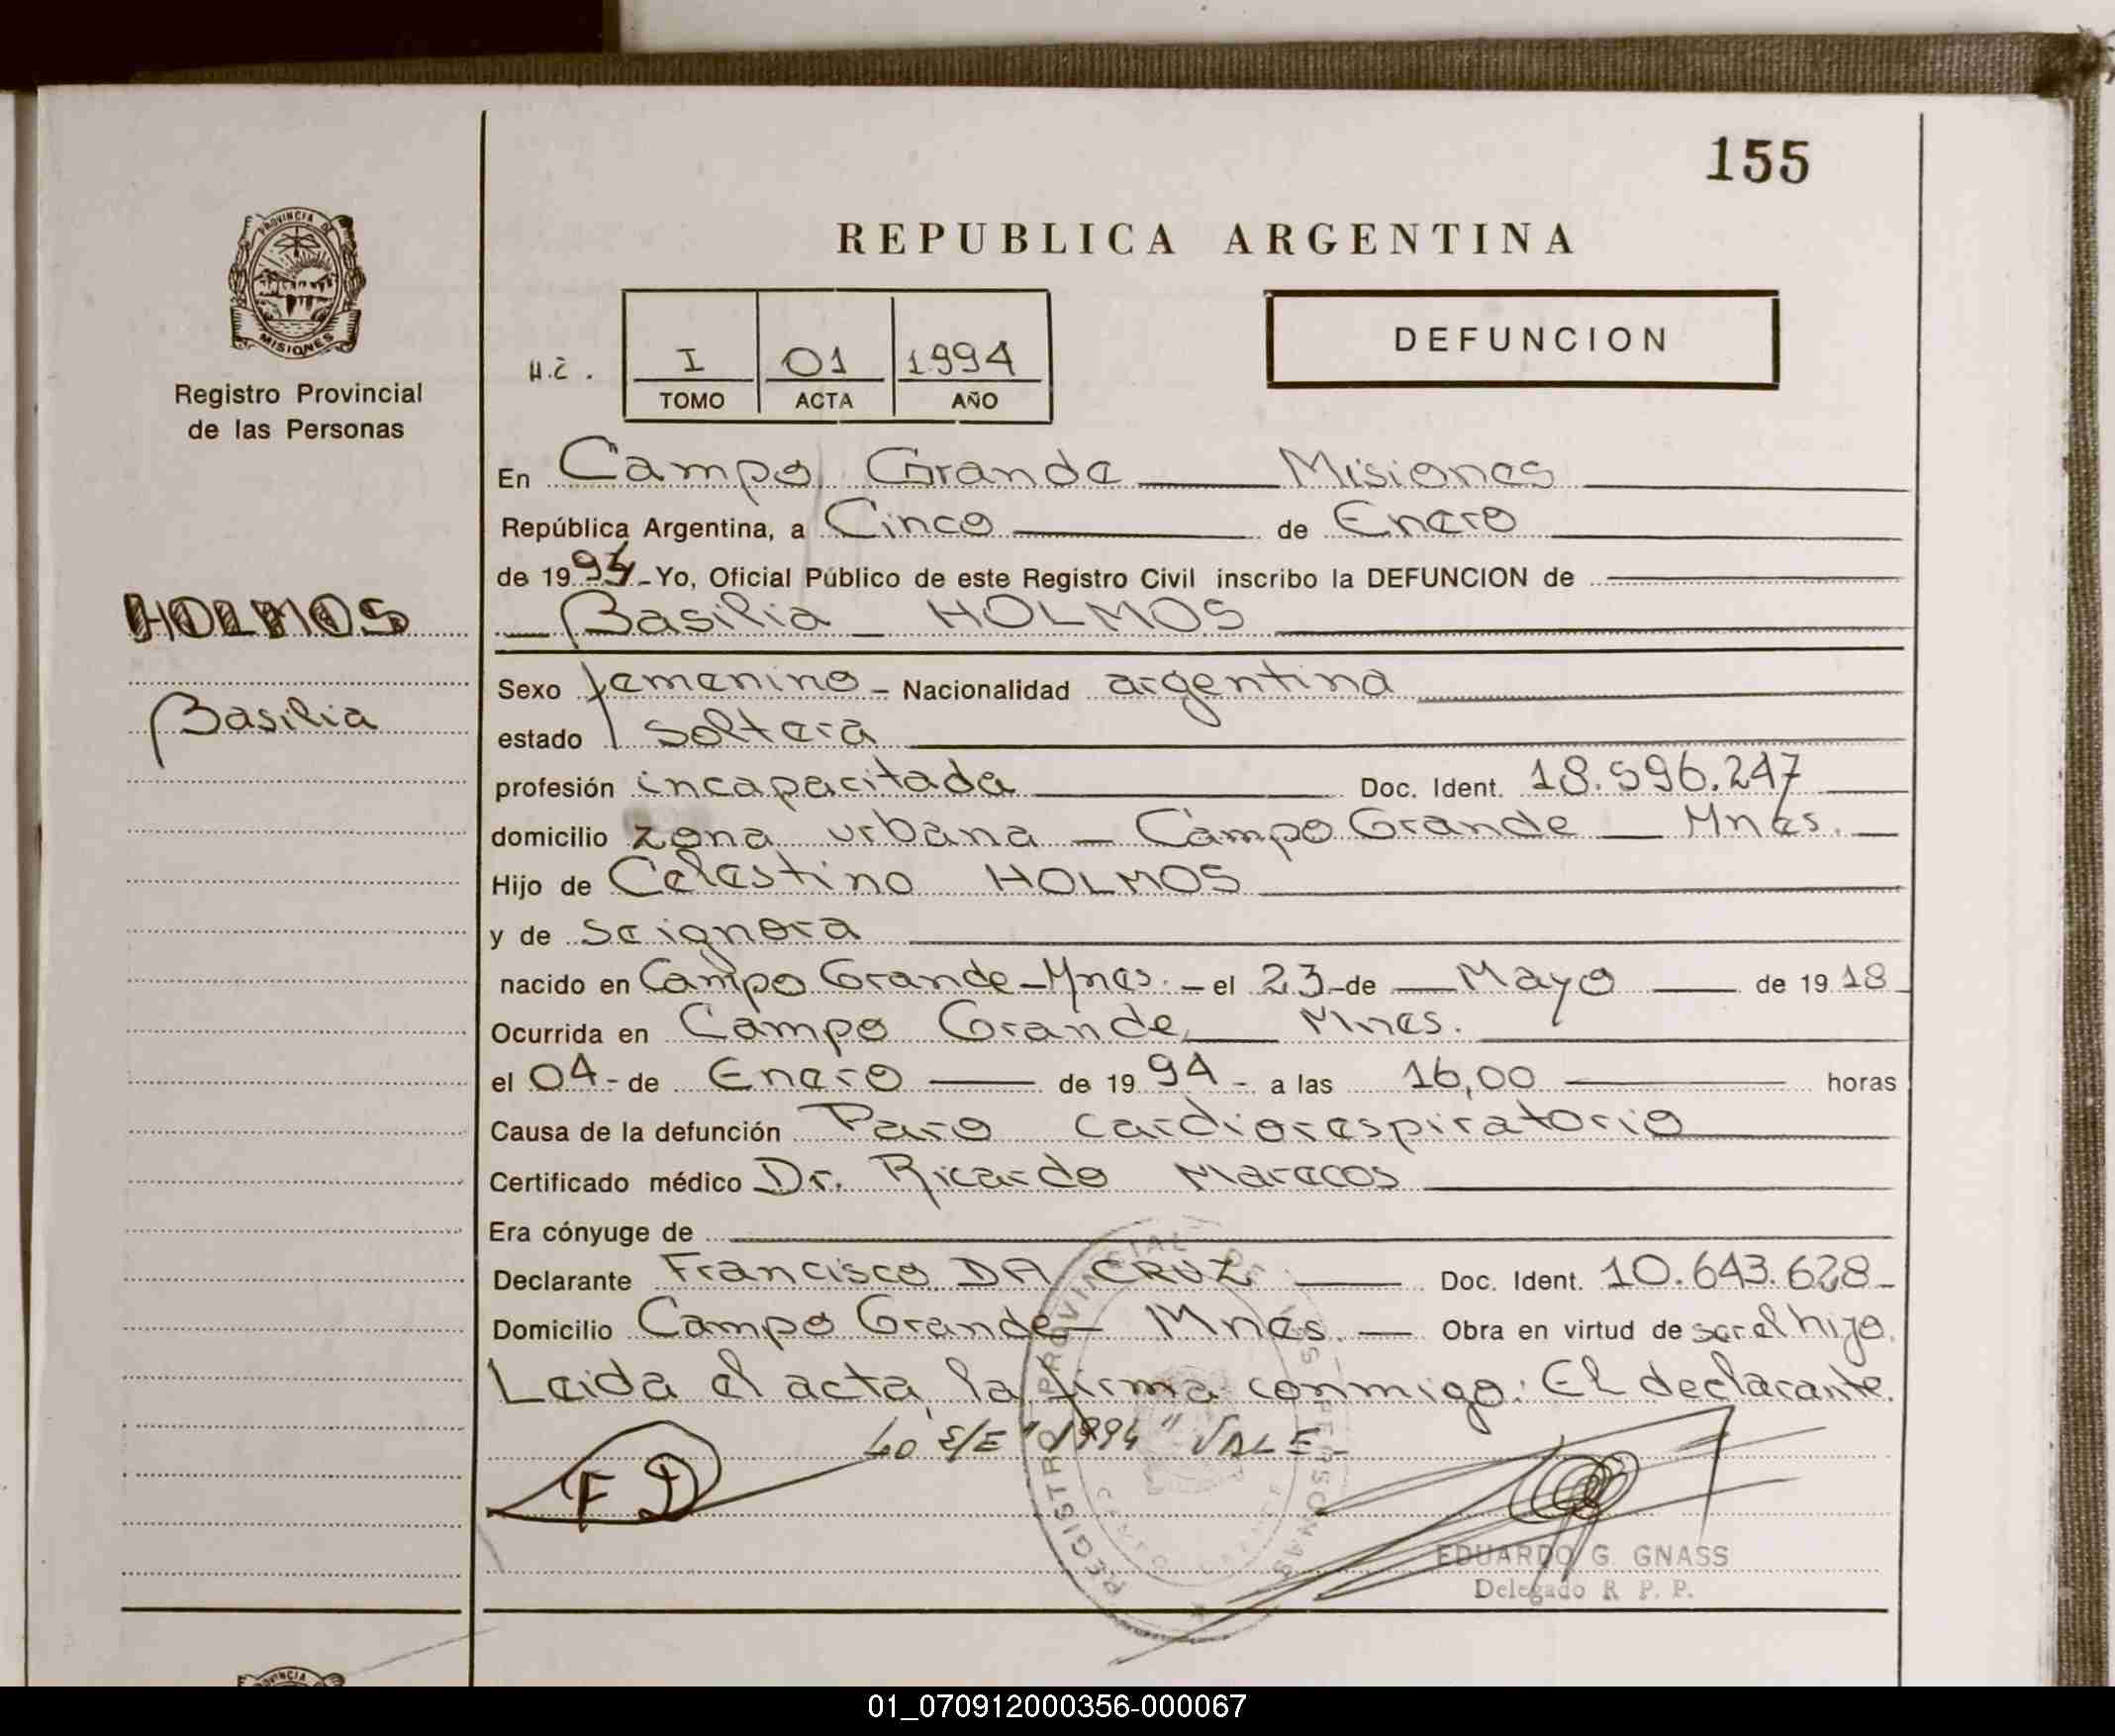 155
REPUBLICA ARGENTINA
PROVINCIA DE
MISIONES
Registro Provincial
de las Personas
I 01 1994
TOMO ACTA AÑO
DEFUNCION
En Campo Grande Misiones
República Argentina, a Cinco de Enero
de 1994 - Yo, Oficial Público de este Registro Civil inscribo la DEFUNCION de
HOLMOS
Basilia
Basilia HOLMOS
Sexo femenino - Nacionalidad argentina
estado soltera
profesión incapacitada Doc. Ident. 18.596.247
domicilio zona urbana - Campo Grande - Mnes.
Hijo de Celestino HOLMOS
y de se ignora
nacido en Campo Grande - Mnes. - el 23 - de Mayo de 1918
Ocurrida en Campo Grande, Mnes.
el 04 - de Enero de 1994 - a las 16,00 horas
Causa de la defunción Paro cardiorespiratorio
Certificado médico Dr. Ricardo Maracos
Era cónyuge de
Declarante Francisco DA CRUZ Doc. Ident. 10.643.628
Domicilio Campo Grande - Mnes. - Obra en virtud de ser el hijo.
Leida el acta, la firma conmigo: El declarante.
Lo E/E "1994" VALE -
F D
REGISTRO PROVINCIAL DE LAS PERSONAS
EDUARDO G. GNASS
Delegado R. P. P.
01_070912000356-000067